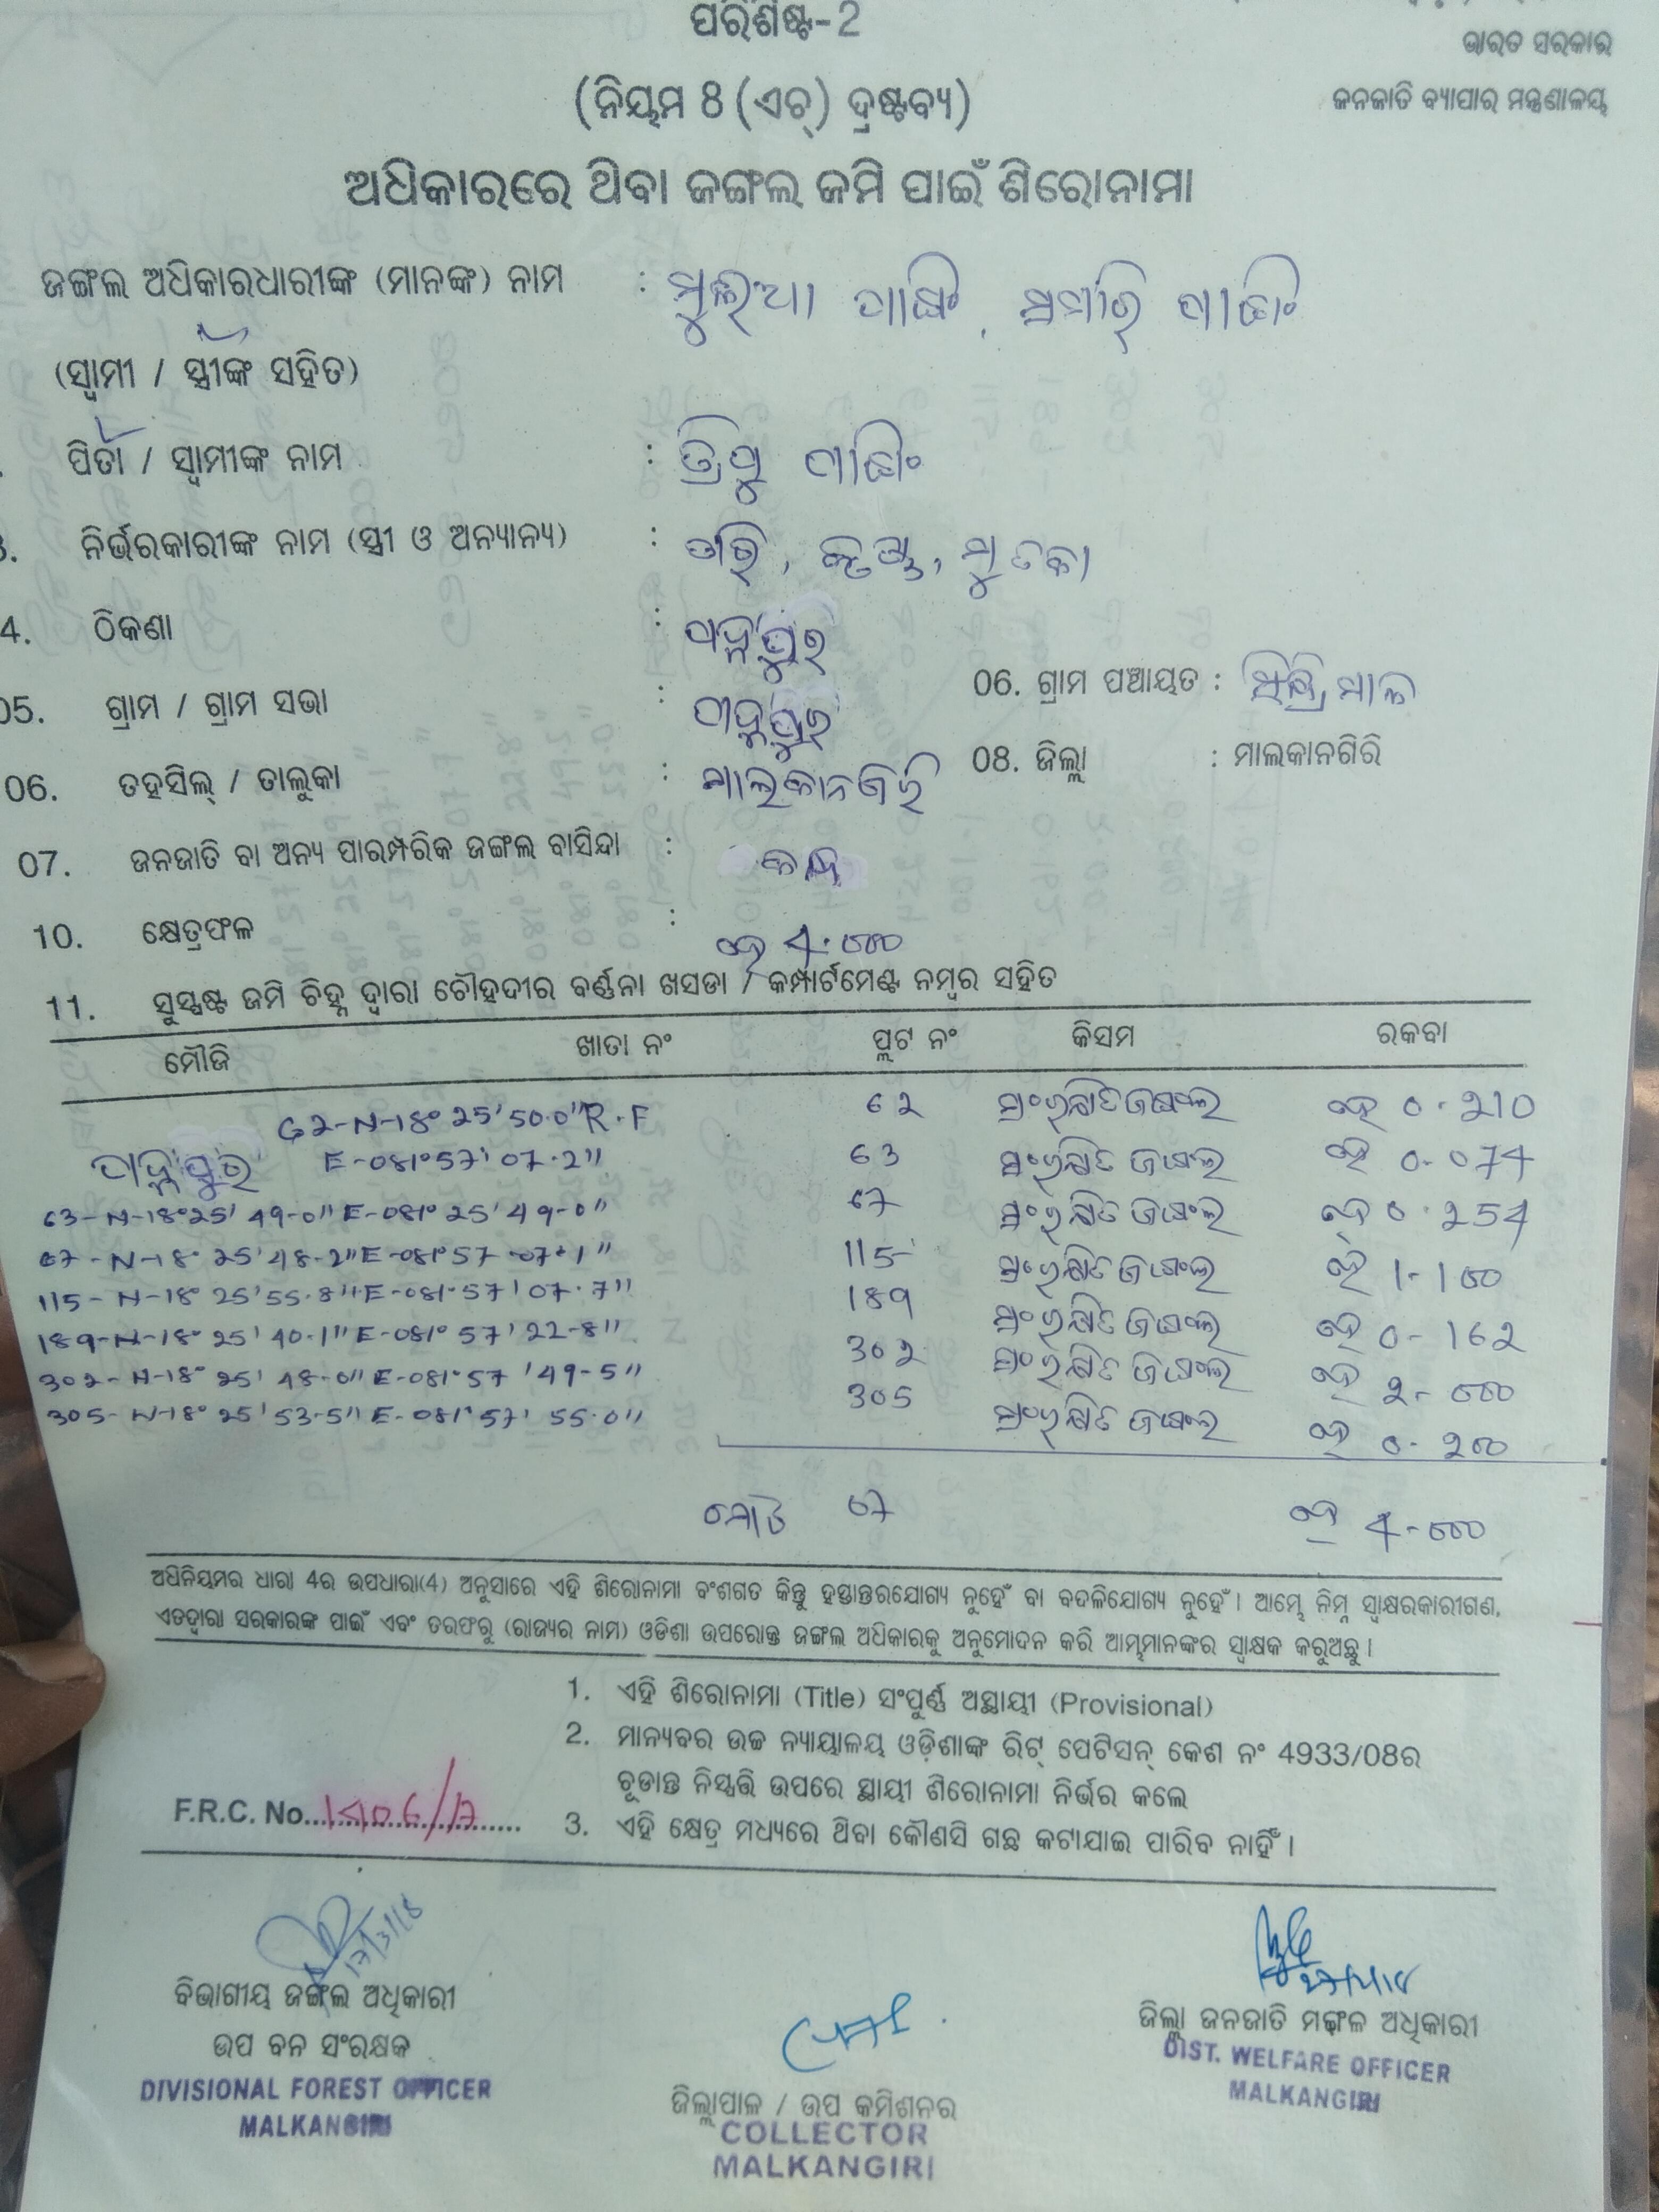 ପରିଶିଷ୍ଟ-2
ଭାରତ ସରକାର
(ନିୟମ 8 (ଏଚ୍) ଦ୍ରଷ୍ଟବ୍ୟ)
ଜନଜାତି ବ୍ୟାପାର ମନ୍ତ୍ରଣାଳୟ
ଅଧିକାରରେ ଥିବା ଜଙ୍ଗଲ ଜମି ପାଇଁ ଶିରୋନାମା
ଜଙ୍ଗଲ ଅଧିକାରଧାରୀଙ୍କ (ମାନଙ୍କ) ନାମ :
(ସ୍ୱାମୀ / ସ୍ତ୍ରୀଙ୍କ ସହିତ)
ପିତା / ସ୍ୱାମୀଙ୍କ ନାମ :
ନିର୍ଭରକାରୀଙ୍କ ନାମ (ସ୍ତ୍ରୀ ଓ ଅନ୍ୟାନ୍ୟ) :
4. ଠିକଣା :
05. ଗ୍ରାମ / ଗ୍ରାମ ସଭା : 06. ଗ୍ରାମ ପଞ୍ଚାୟତ :
06. ତହସିଲ୍ / ତାଲୁକା : ମାଲକାନଗିରି 08. ଜିଲ୍ଲା : ମାଲକାନଗିରି
07. ଜନଜାତି ବା ଅନ୍ୟ ପାରମ୍ପରିକ ଜଙ୍ଗଲ ବାସିନ୍ଦା :
10. କ୍ଷେତ୍ରଫଳ : ହେ 4.000
11. ସୁସ୍ପଷ୍ଟ ଜମି ଚିହ୍ନ ଦ୍ୱାରା ଚୌହଦୀର ବର୍ଣ୍ଣନା ଖସଡା / କମ୍ପାର୍ଟମେଣ୍ଟ ନମ୍ବର ସହିତ
ମୌଜି ଖାତା ନଂ ପ୍ଲଟ ନଂ କିସମ ରକବା
62-N-18° 25' 50.0" R.F 62 ସଂରକ୍ଷିତ ଜଙ୍ଗଲ ହେ 0.210
E-081° 57' 07.2" 63 ସଂରକ୍ଷିତ ଜଙ୍ଗଲ ହେ 0.074
63-N-18° 25' 49-0" E-081° 25' 49-0" 67 ସଂରକ୍ଷିତ ଜଙ୍ଗଲ ହେ 0.254
67-N-18° 25' 48.2" E-081° 57 07.1" 115 ସଂରକ୍ଷିତ ଜଙ୍ଗଲ ହେ 1-100
115-N-18° 25' 55.8" E-081° 57' 07.7" 189 ସଂରକ୍ଷିତ ଜଙ୍ଗଲ ହେ 0-162
189-N-18° 25' 40.1" E-081° 57' 22-8" 302 ସଂରକ୍ଷିତ ଜଙ୍ଗଲ ହେ 2-000
302-N-18° 25' 48-0" E-081° 57 '49-5" 305 ସଂରକ୍ଷିତ ଜଙ୍ଗଲ ହେ 0-200
305-N-18° 25' 53-5" E-081° 57' 55.0"
ମୋଟ 07 ହେ 4-000
ଅଧିନିୟମର ଧାରା 4ର ଉପଧାରା(4) ଅନୁସାରେ ଏହି ଶିରୋନାମା ବଂଶଗତ କିନ୍ତୁ ହସ୍ତାନ୍ତରଯୋଗ୍ୟ ନୁହେଁ ବା ବଦଳିଯୋଗ୍ୟ ନୁହେଁ। ଆମ୍ଭେ ନିମ୍ନ ସ୍ୱାକ୍ଷରକାରୀଗଣ,
ଏତଦ୍ୱାରା ସରକାରଙ୍କ ପାଇଁ ଏବଂ ତରଫରୁ (ରାଜ୍ୟର ନାମ) ଓଡିଶା ଉପରୋକ୍ତ ଜଙ୍ଗଲ ଅଧିକାରକୁ ଅନୁମୋଦନ କରି ଆମ୍ଭମାନଙ୍କର ସ୍ୱାକ୍ଷକ କରୁଅଛୁ।
1. ଏହି ଶିରୋନାମା (Title) ସଂପୂର୍ଣ୍ଣ ଅସ୍ଥାୟୀ (Provisional)
2. ମାନ୍ୟବର ଉଚ୍ଚ ନ୍ୟାୟାଳୟ ଓଡ଼ିଶାଙ୍କ ରିଟ୍ ପେଟିସନ୍ କେଶ ନଂ 4933/08ର
ଚୂଡାନ୍ତ ନିସ୍ପତ୍ତି ଉପରେ ସ୍ଥାୟୀ ଶିରୋନାମା ନିର୍ଭର କଲେ
F.R.C. No.
3. ଏହି କ୍ଷେତ୍ର ମଧ୍ୟରେ ଥିବା କୌଣସି ଗଛ କଟାଯାଇ ପାରିବ ନାହିଁ।
17/3/18
ବିଭାଗୀୟ ଜଙ୍ଗଲ ଅଧିକାରୀ
ଉପ ବନ ସଂରକ୍ଷକ
DIVISIONAL FOREST OFFICER
MALKANGIRI
ଜିଲ୍ଲାପାଳ / ଉପ କମିଶନର
COLLECTOR
MALKANGIRI
ଜିଲ୍ଲା ଜନଜାତି ମଙ୍ଗଳ ଅଧିକାରୀ
DIST. WELFARE OFFICER
MALKANGIRI